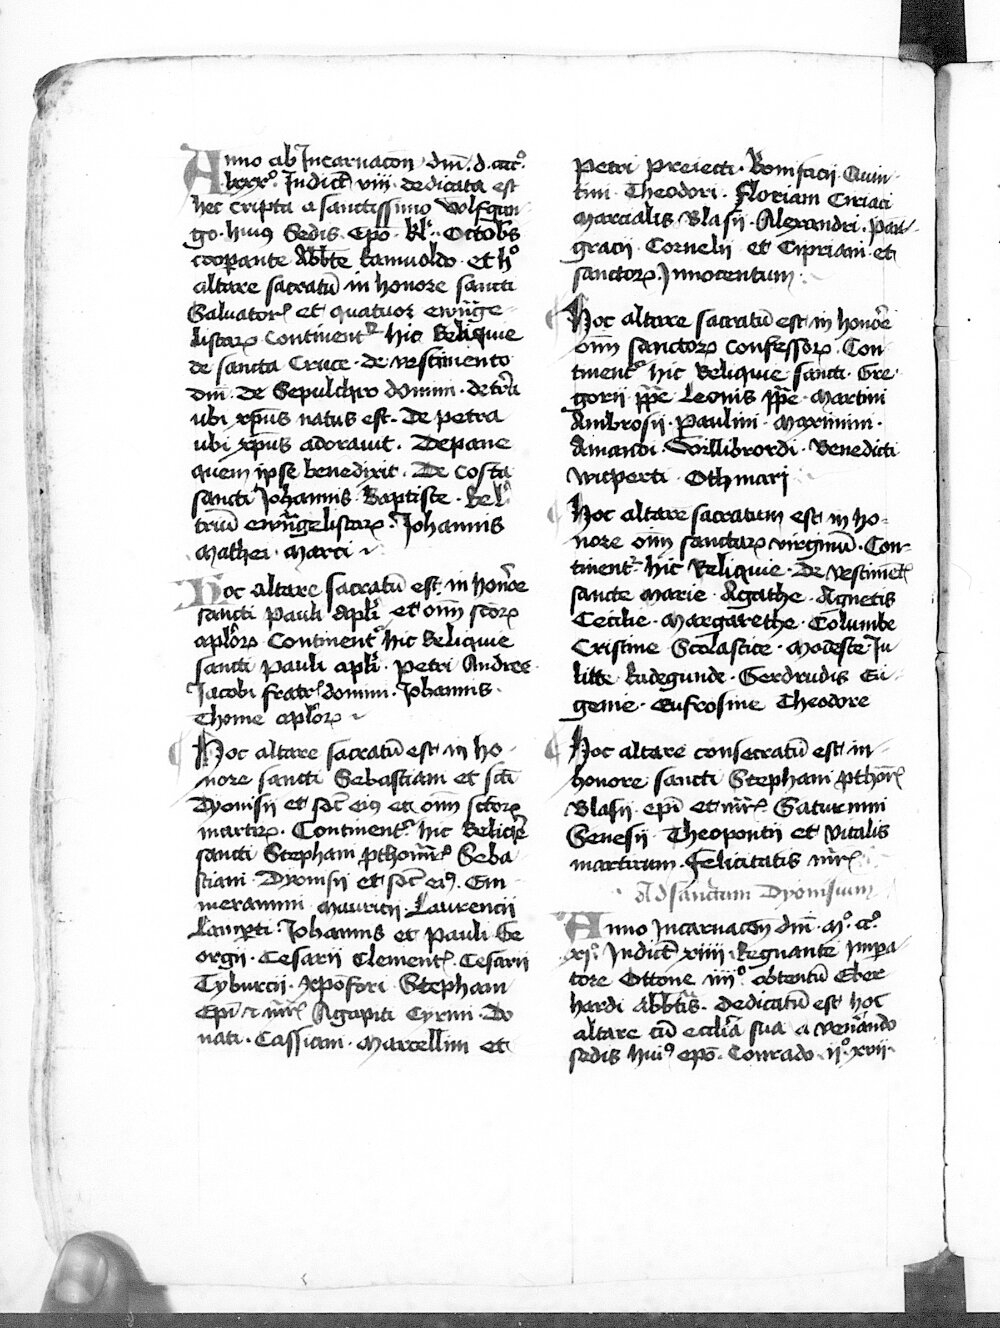 Anno ab Incarnacōn dm̄. d.cccc°.
lxxx°. Indict̄ viii dedicata est
hec cripta a sanctissimo Wlfgan-
go huiꝰ Sedis Epō. kł. Octobs
coopante Abb̄te Ramuoldo et h°
altare sacratū in honore sancti
Saluatorꝭ et quatuor ewn̄ge-
listaꝝ Continentᷣ hic Reliquie
de sancta Cruce de vestimento
dm̄. De Sepulchro domini. de t'ra
ubi xp̄us natus est. De petra
ubi xp̄us adorauit. De pane
quem ipse benedixit. De costa
sancti Johannis Baptiste. Rel'
triū ewn̄gelistaꝝ. Johannis
Mathei. Marci
Hoc altare sacratū est in honore
sancti Pauli Apłi et om̄ sc̄oꝝ
apl̄oꝝ Continentᷣ hic Reliquie
sancti Pauli apłi. Petri Andree
Jacobi fratrꝭ domini. Johannis.
Thome apl̄oꝝ
Hoc altare sacratū est in ho-
nore sancti Sebastiani et sc̄i
Dyonisii et soc̄ eiꝰ et om̄ sc̄toꝝ
martirꝝ. Continentᷣ hic Reliqie
sancti Stephani pthom̄rꝭ Seba-
stiani Dyonisii et soc̄ eiꝰ. Em-
merammi Mauricii Laurencii
Lampti. Johannis et Pauli Ge-
orgii. Cesarii Clementꝭ. Cesarii
Tyburcii. Xp̄ofori Stephani
Epī et m̄rꝭ Agapiti Cyrini Do-
nati. Cassiani. Marcellini et
Petri Preiecti. Bonifacii Quin-
tini Theodori. Floriani Ciriaci
Marcialis Blasii. Alexandri. Pan-
gracii Cornelii et Cipriani et
sanctoꝝ Innocentum
Hoc altare sacratū est in honore
om̄ sanctoꝝ confessoꝝ. Con-
tinentᷣ hic Reliquie sancti Gre-
gorii pp̄e Leonis pp̄e Martini
Ambrosii. Paulini Maximini.
Amandi. Willibrordi. Benedicti
Wicperti Othmari
Hoc altare sacratum est in ho-
nore om̄ sanctaꝝ virginū. Con-
tinentᷣ hic Reliquie. De vestimētꝭ
sancte Marie Agathe Agnetis
Cecilie. Margarethe. Columbe
Cristine Scolastice. Modeste Ju-
litte Radegunde. Gerdrudis Eu-
genie. Eufrosine Theodore
Hoc altare consecratū est in
honore sancti Stephani pthom̄rꝭ
Blasii epī et m̄rꝭ Saturnini
Genesii Theopontii et Vitalis
martirum. Felicitatis m̄rꝭ
Ad sanctum Dyonisium
Anno Incarnacōn dm̄. M°. cc°.
xi°. Indict̄ xiiii Regnante Impa-
tore Ottone iiii° obtentū Eber-
hardi Abb̄tis. Dedicatū est hoc
altare cū eccl̄ia sua a venꝭando
sedis huiꝰ epō. Conrado. ii° xvii.